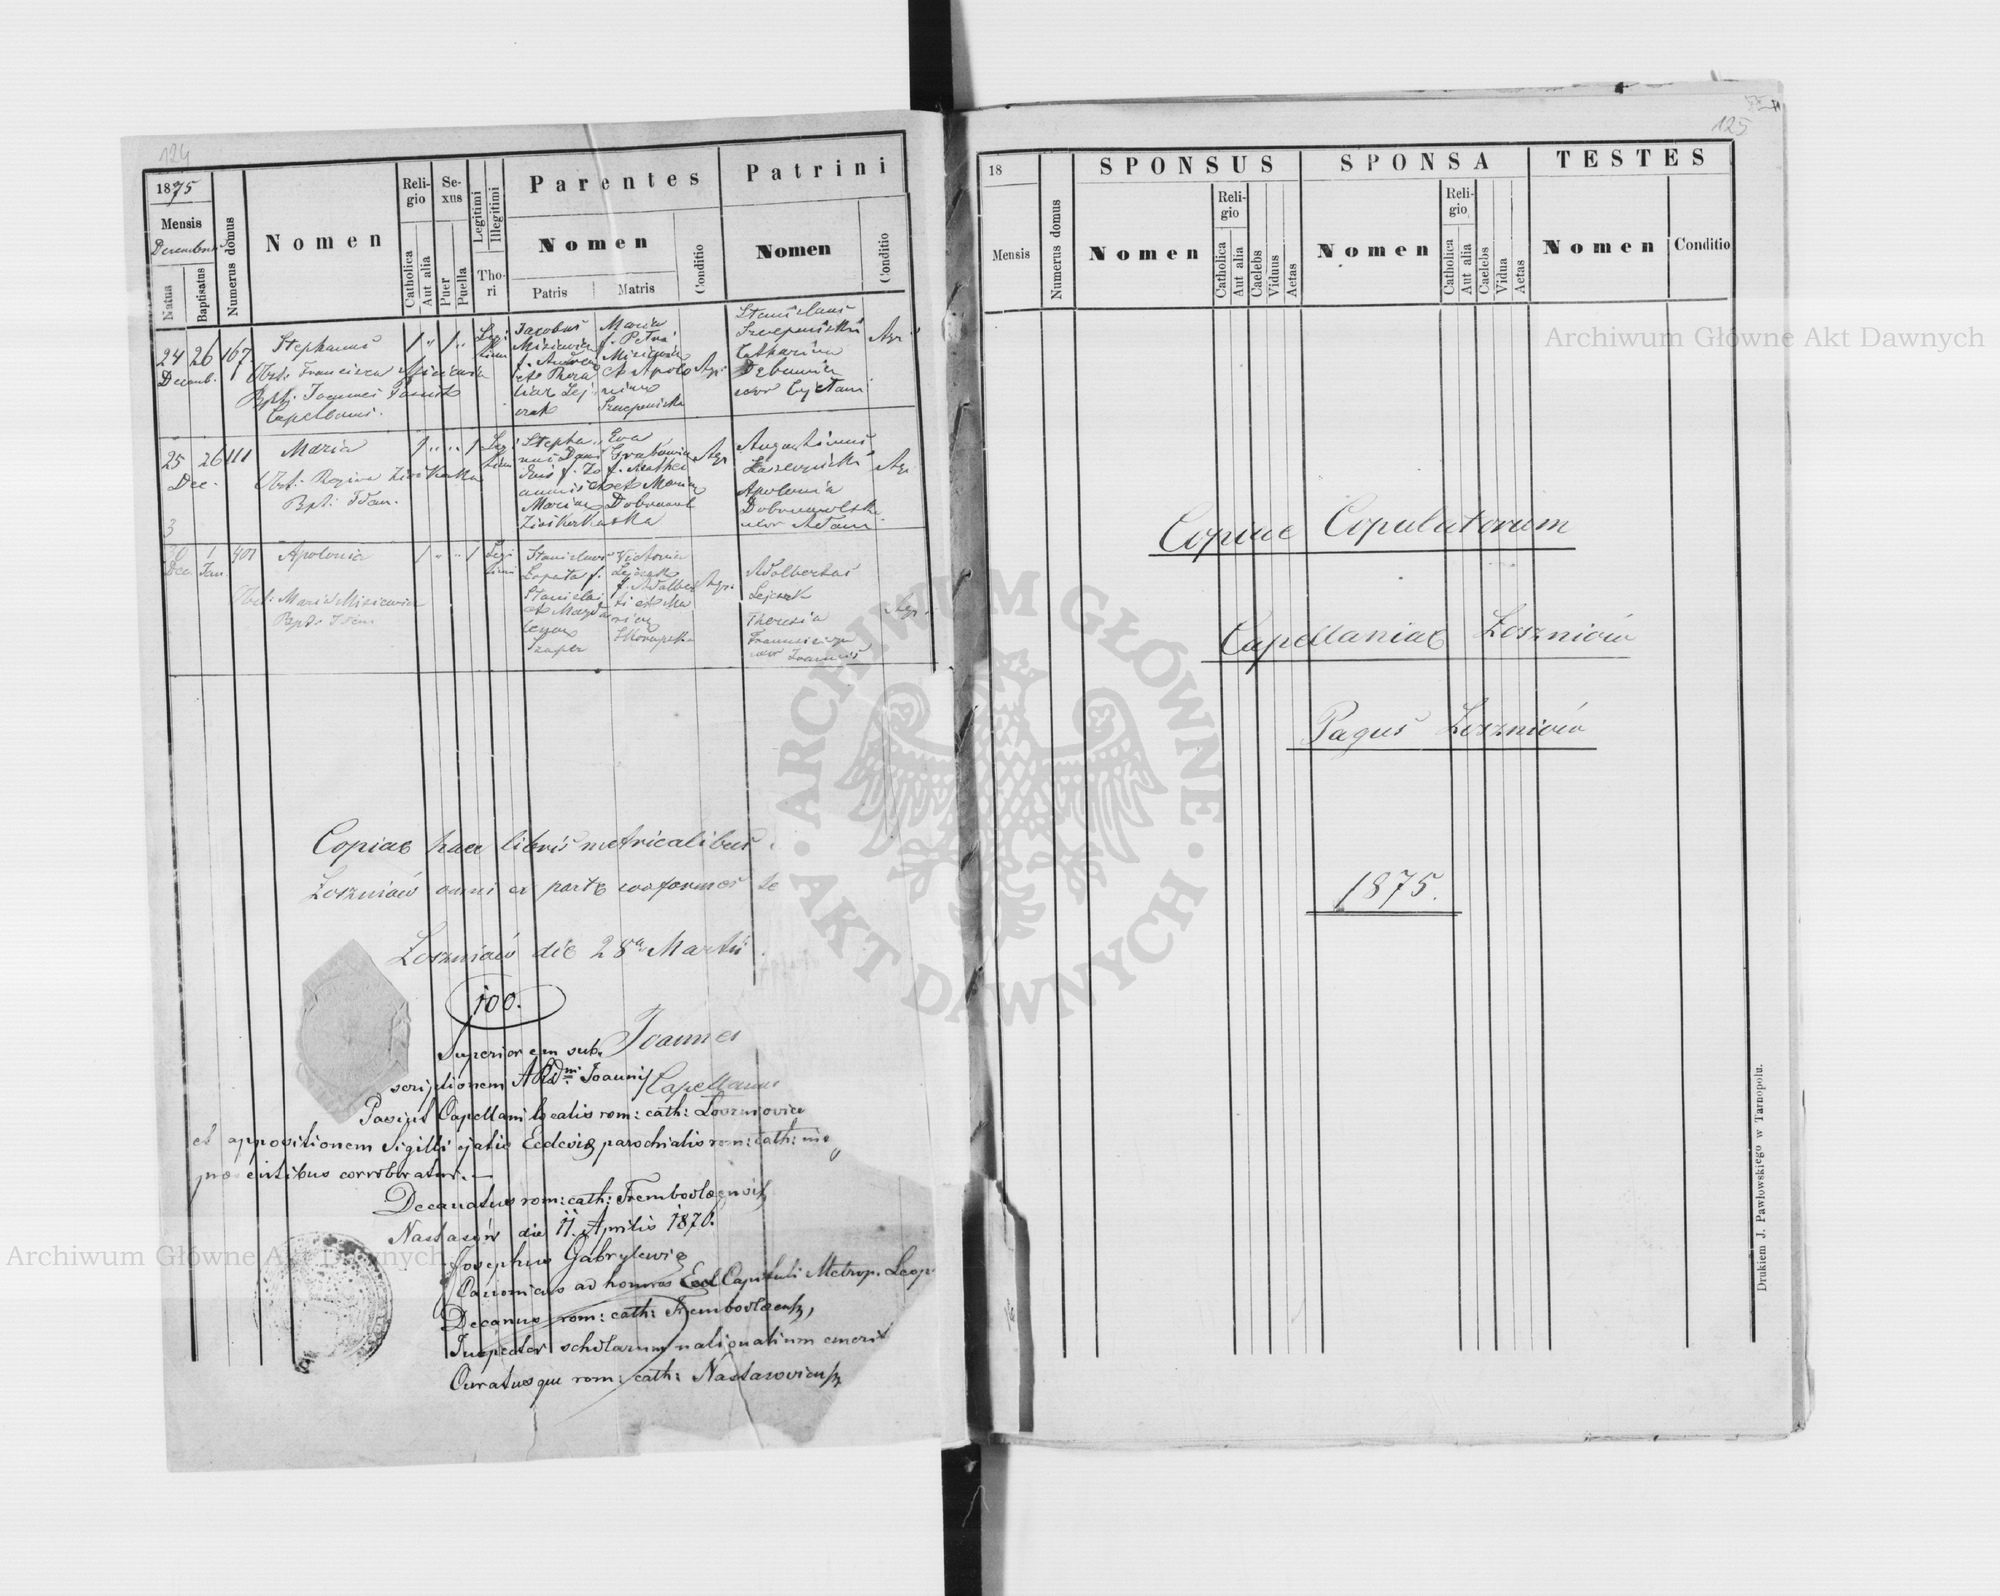 124
1875
Mensis
Decembris
Natus
Baptisatus
Numerus domus
Nomen
Religio
Catholica
Aut alia
Sexus
Puer
Puella
Legitimi
Illegitimi
Thori
Parentes
Nomen
Patris
Matris
Conditio
Patrini
Nomen
Conditio
24 26 167
Decemb.
Stephanus
Obst: Francisca Misiewicz
Bpt. Joannes
Capellanus.
1 " 1 "
Legi
timi
Jacobus
Misiewicz
f. Andreae
et Thecla
Maria
f. Petri
Misiewicz
et Apolo
niae
Szczepańska
Agr.
Stanislaus
Szczepański
Catharina
uxor Cajetani
Agr.
25 26 111
Dec.
Maria
Obst: Regina
Bpt: Idem.
1 " " 1
Legi
timi
Stepha
nus
f. Jo
annis et
Mariae
Eva
Grabowicz
f. Mathei
et Mariae
Agr
Augustinus
Apolonia
uxor Adami
Agr.
3
30 1 401
Dec. Jan.
Apolonia
Obst: Maria Misiewicz
Bpt: Idem
1 " " 1
Legi
timi
Stanislaus
Łopata f.
Stanislai
et Magda
lenae
Szafer
Victoria
Lejczak
f. Adalber
ti et Ma
riae
Skorupska
Agr.
Adalbertus
Lejczak
Theresia
uxor Joannis
Agr.
Copiae haec libris metricalibus
Łoszniów omni ex parte conformes
Łoszniów die 28ª Martii
100.
Superiorem sub
Joannes
scriptionem ARdmi Joannis
Capellanus
Capellani localis rom: cath: Łoszniovien
et appositionem Sigilli ejatis Ecclesiae parochialis rom: cath:
praesentibus corroboratur. —
Decanatus rom: cath: Trembovlaensis
Nastasów die 11. Aprilis 1876.
Josephus Gabrylewicz
Canonicus ad honores Capituli Metrop. Leop.
Decanus rom: cath: Trembovlaensis,
Inspector scholarum nationalium emerit
Curatusque rom: cath: Nastasoviensis
125
18
Mensis
Numerus domus
SPONSUS
Nomen
Religio
Catholica
Aut alia
Caelebs
Viduus
Aetas
SPONSA
Nomen
Religio
Catholica
Aut alia
Caelebs
Vidua
Aetas
TESTES
Nomen
Conditio
Copiae Copulatorum
Capellaniae Łoszniów
Pagus Łoszniów
1875.
Drukiem J. Pawłowskiego w Tarnopolu.
Archiwum Główne Akt Dawnych
Archiwum Główne Akt Dawnych
ARCHIWUM GŁÓWNE · AKT DAWNYCH ·